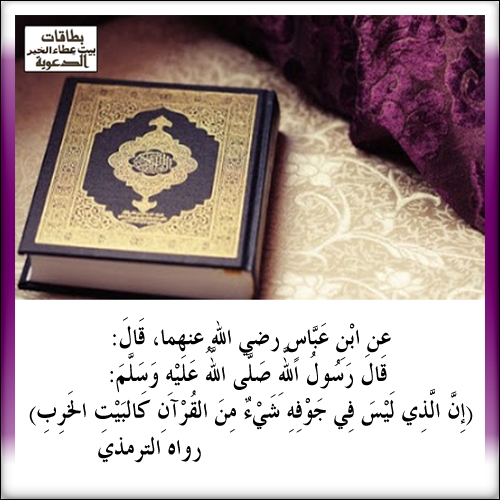 بطاقات
بيت عطاء الخير
الدعوية
القرآن الكريم
عن ابْنِ عَبَّاسٍ رضي الله عنهما، قَالَ:
قَالَ رَسُولُ اللَّهِ صَلَّى اللَّهُ عَلَيْهِ وَسَلَّمَ:
(إِنَّ الَّذِي لَيْسَ فِي جَوْفِهِ شَيْءٌ مِنَ القُرْآنِ كَالبَيْتِ الخَرِبِ)
رواه الترمذي